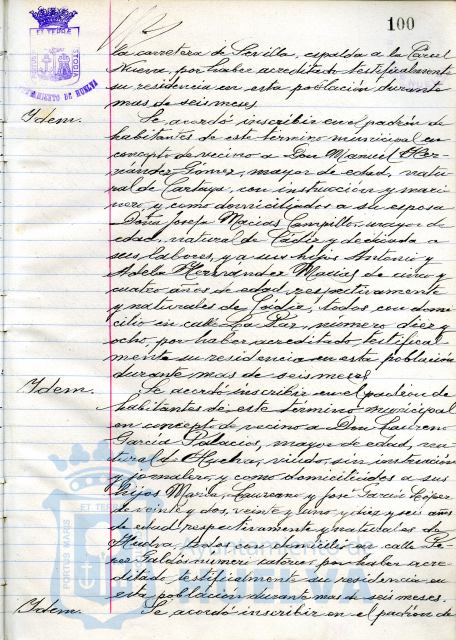 100
la carretera de Sevilla, espalda a la Cárcel
Nueva, por haber acreditado testificalmente
su residencia en esta población durante
mas de seis meses.
Idem. Se acordó inscribir en el padrón de
habitantes de este término municipal en
concepto de vecino a Don Manuel Her-
nández Gómez, mayor de edad, natu-
ral de Cartaya, con instrucción y mari-
nero, y como domiciliados a su esposa
Doña Josefa Macias Campillo, mayor de
edad, natural de Cádiz y dedicada a
sus labores, y a sus hijos Antonio y
Adela Hernández Macias de cinco y
cuatro años de edad, respectivamente
y naturales de Cádiz, todos con domi-
cilio en calle La Paz, número diez y
ocho, por haber acreditado testifical-
mente su residencia en esta población
durante mas de seis meses.
Idem. Se acordó inscribir en el padrón de
habitantes de este término municipal
en concepto de vecino a Don Laureno
García Palacios, mayor de edad, na-
tural de Huelva, viudo, sin instrucción
y jornalero, y como domiciliados a sus
hijos María, Laureano y José García López
de veinte y dos, veinte y uno y diez y seis años
de edad respectivamente y naturales de
Huelva, todos con domicilio en calle Pé-
rez Galdós número catorce, por haber acre-
ditado testificalmente su residencia en
esta población durante mas de seis meses.
Idem. Se acordó inscribir en el padrón de
ET TERRÆ
AYUNTAMIENTO DE HUELVA
ET TERRÆ
PORTUS MARIS
Ayuntamiento de
HUELVA